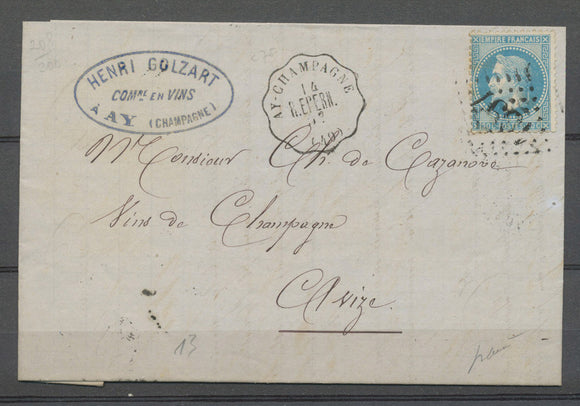 HENRI GOLZART
COM.RE EN VINS
À AY (CHAMPAGNE)
AY-CHAMPAGNE
14
R.EPERN.
EMPIRE FRANÇAIS
Monsieur Ch. de Cazanove
Vins de Champagne
Avize.
13